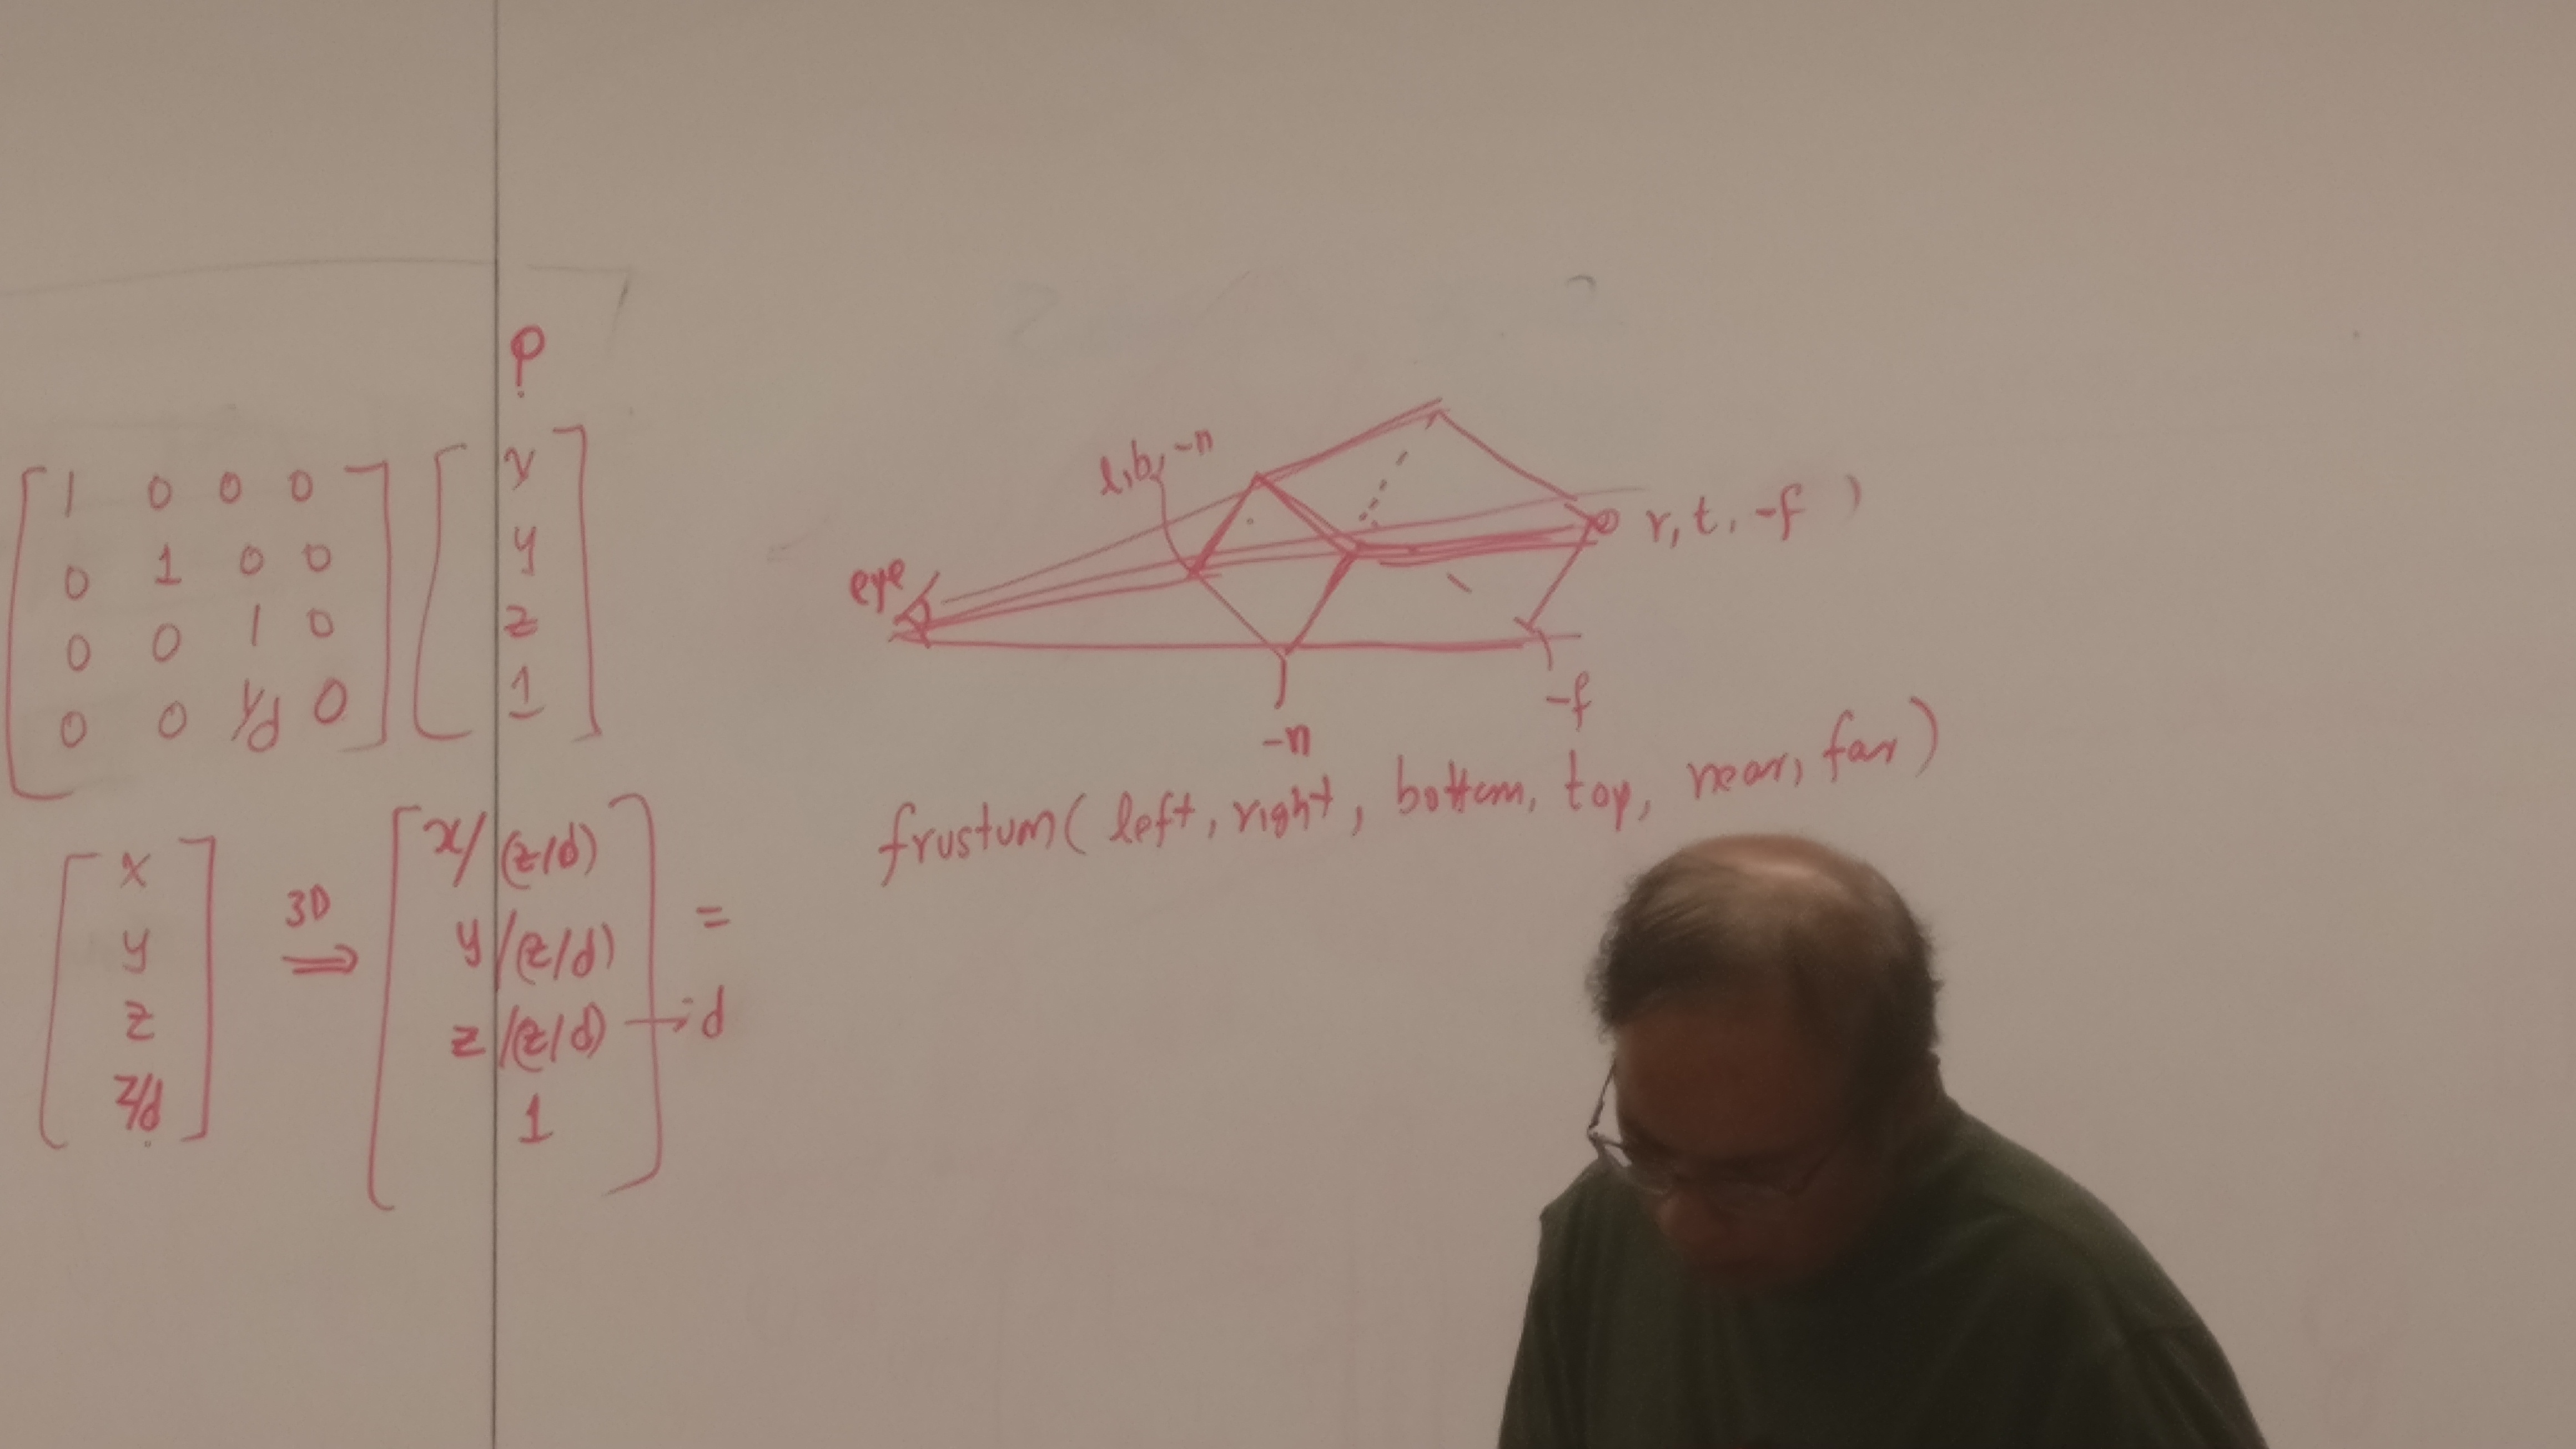 P
1 0 0 0
0 1 0 0
0 0 1 0
0 0 1/d 0
x
y
z
1
x
y
z
z/d
3D
⇒
x/(z/d)
y/(z/d)
z/(z/d) → d
1
=
eye
l, b, -n
r, t, -f )
-n
-f
frustum( left, right, bottom, top, near, far)